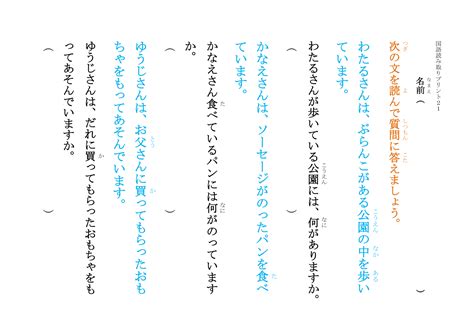 国語読み取りプリント21
名前（　　　　　　）
次の文を読んで質問に答えましょう。
わたるさんは、ぶらんこがある公園の中を歩い
ています。
わたるさんが歩いている公園には、何がありますか。
（　　　　　　）
かなえさんは、ソーセージがのったパンを食べ
ています。
かなえさん食べているパンには何がのっています
か。
（　　　　　　）
ゆうじさんは、お父さんに買ってもらったおも
ちゃをもってあそんでいます。
ゆうじさんは、だれに買ってもらったおもちゃをも
ってあそんでいますか。
（　　　　　　）